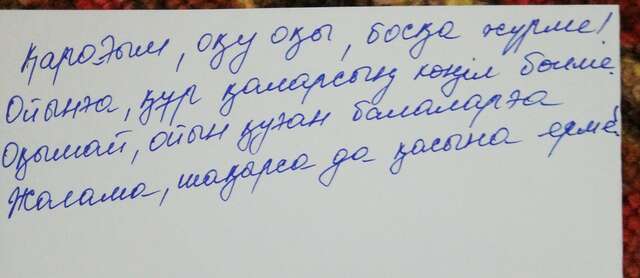 Қарағым, оқу оқы, босқа жүрме!
Ойынға, құр қаларсың көңіл бөлме.
Оқымай, ойын қуған балаларға
Жолама, шақырса да қасына ерме!